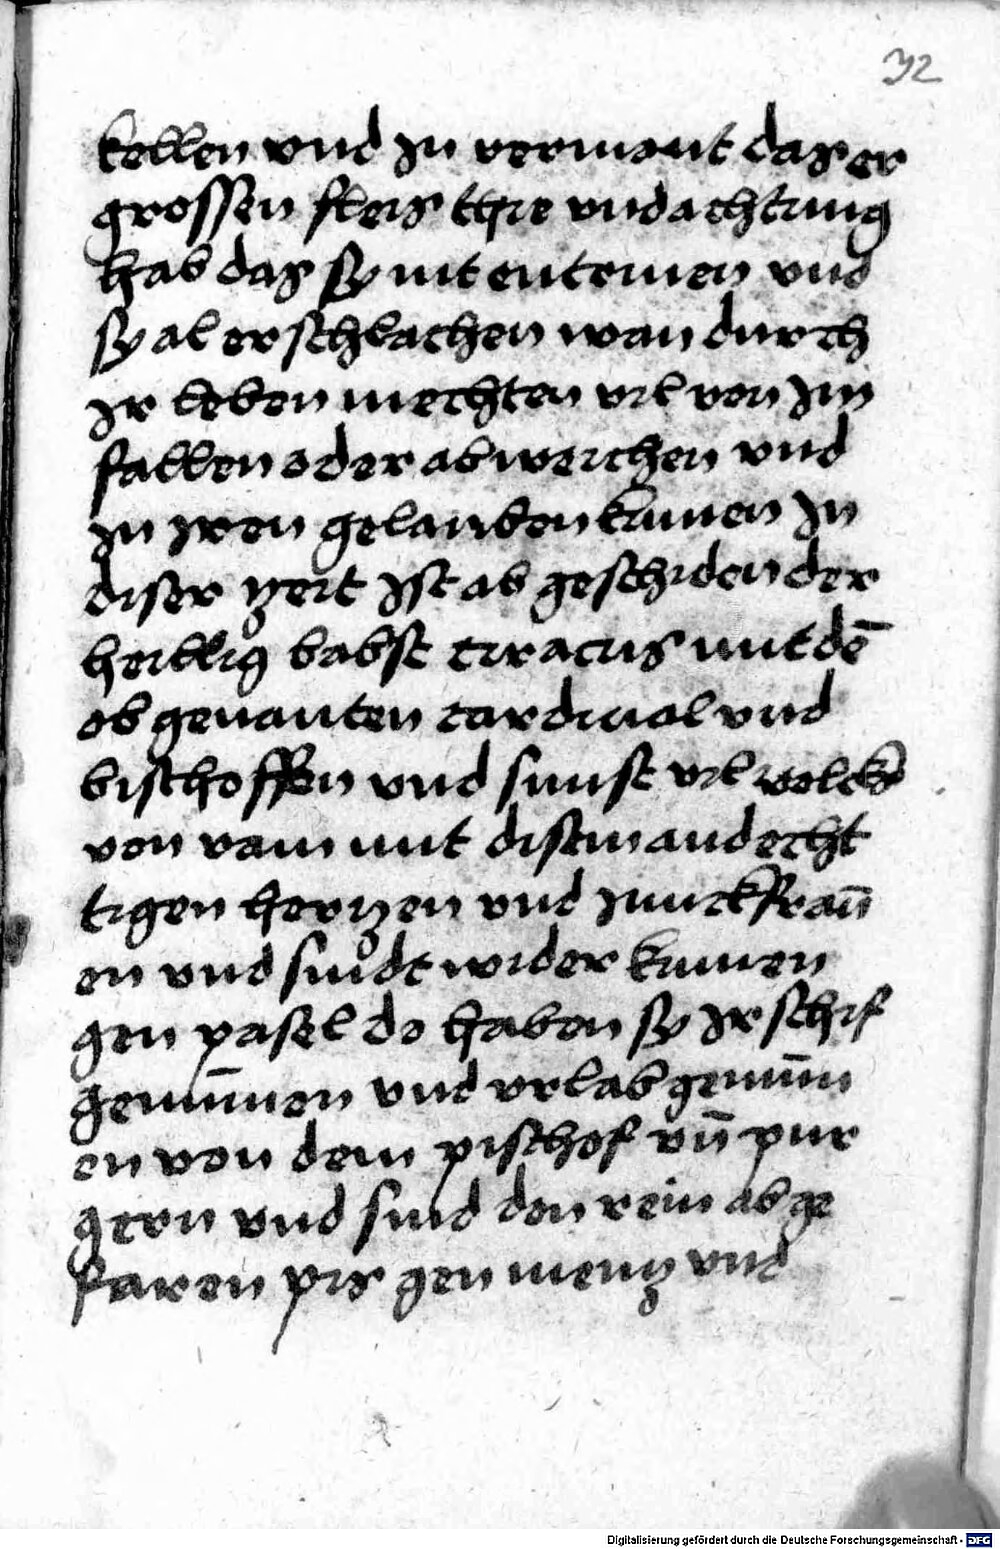 32
kellen vnd In vermant das er
grossen fleis thue vnd achtung
hab das sy nit entrinen vnd
sy al erschlachen wan durch
Ir leben mechten vil von Im
fallen oder ab weichen vnd
zu Iren gelauben kumen In
diser zeit Ist ab geschiden der
heillig babst ciracus mit dē
ob genanten cardinal vnd
bischoffen vnd sunst vil volcks
von ram mit disem andecht
tigen herzen vnd Junckfraū
en vnd sindt wider kumen
gen pasel do haben sy Ir schif
genūmen vnd vrlab genūm
en von dem pischof vn̄ pur
gern vnd sind den rein ab ge
faren pis gen menz vnd
Digitalisierung gefördert durch die Deutsche Forschungsgemeinschaft - DFG